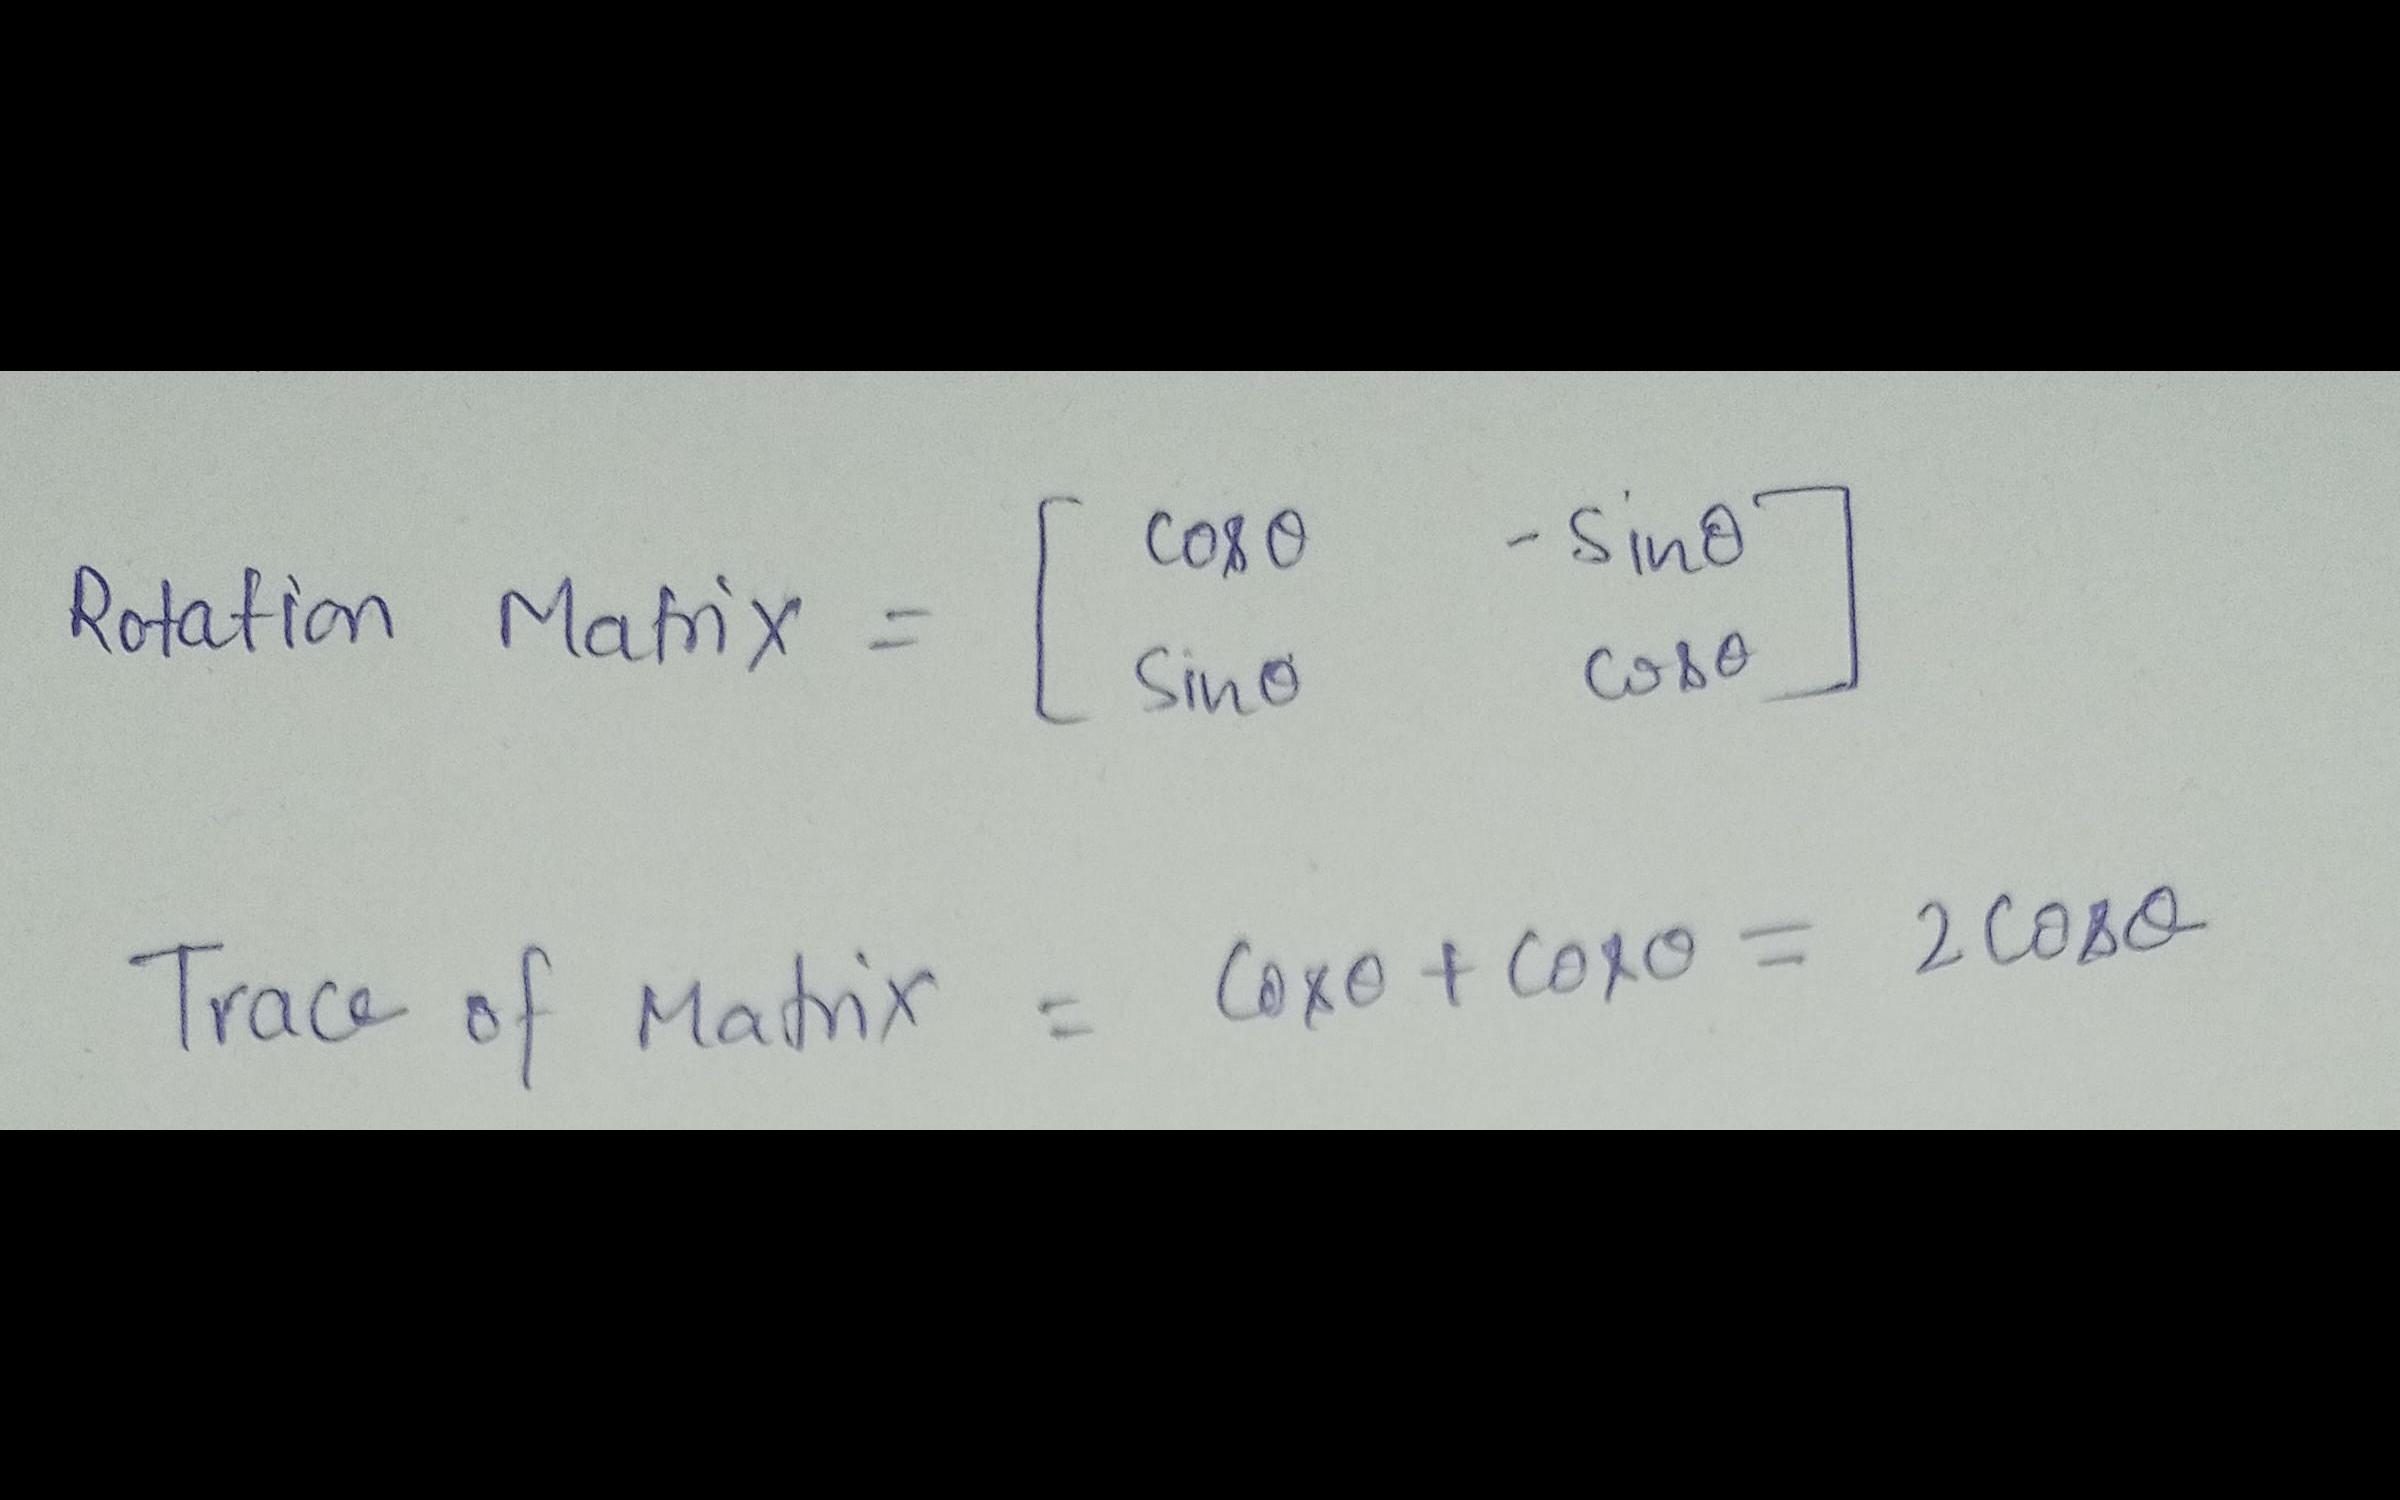 Rotation Matrix = [ cosθ -sinθ
sinθ cosθ ]
Trace of Matrix = cosθ + cosθ = 2cosθ